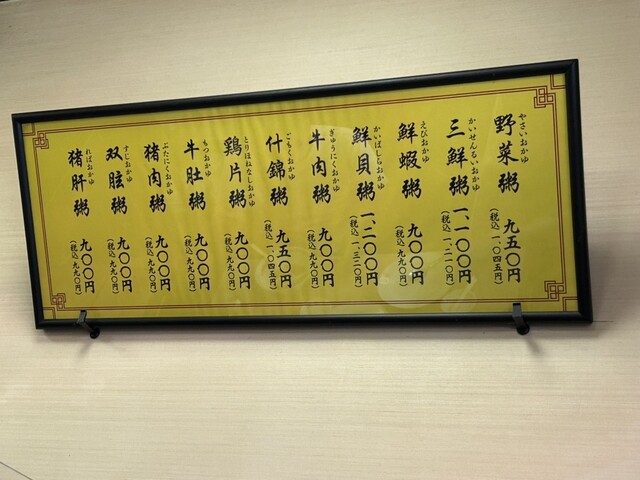 やさいおかゆ
野菜粥 九五〇円
(税込 一、〇四五円)
かいせんるいおかゆ
三鮮粥 一、一〇〇円
(税込 一、二一〇円)
えびおかゆ
鮮蝦粥 九〇〇円
(税込 九九〇円)
かいばしらおかゆ
鮮貝粥 一、二〇〇円
(税込 一、三二〇円)
ぎゅうにくおかゆ
牛肉粥 九〇〇円
(税込 九九〇円)
ごもくおかゆ
什錦粥 九五〇円
(税込 一、〇四五円)
とりほねなしおかゆ
鶏片粥 九〇〇円
(税込 九九〇円)
もつおかゆ
牛肚粥 九〇〇円
(税込 九九〇円)
ぶたにくおかゆ
猪肉粥 九〇〇円
(税込 九九〇円)
すじおかゆ
双胘粥 九〇〇円
(税込 九九〇円)
ればおかゆ
猪肝粥 九〇〇円
(税込 九九〇円)